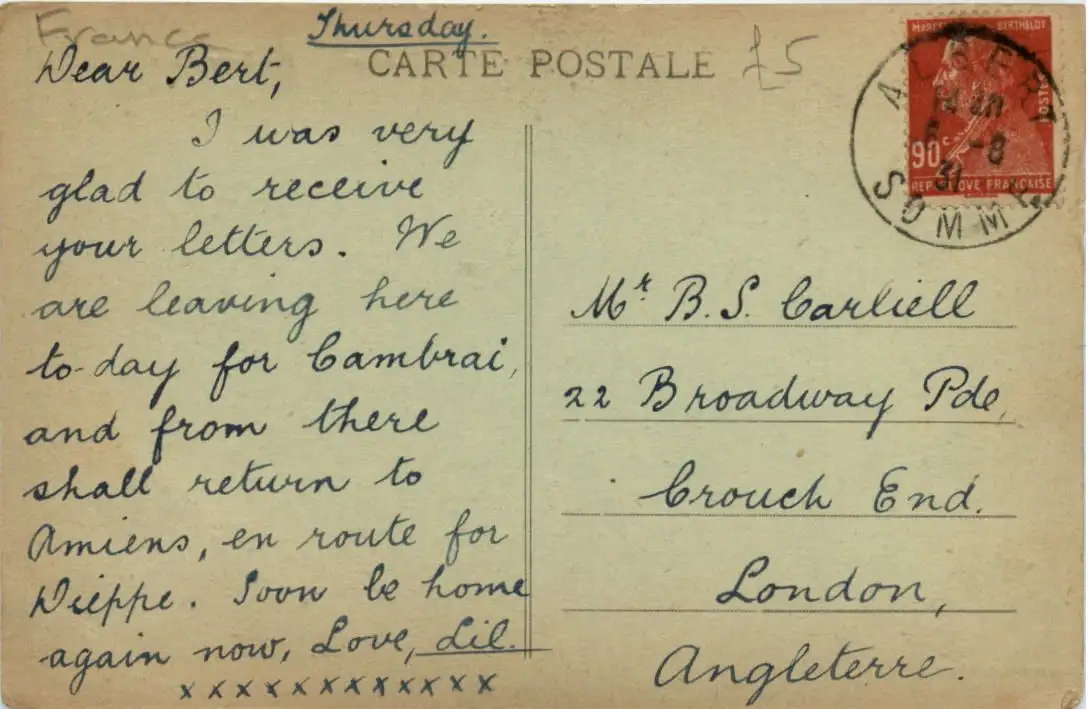 France
Thursday.
CARTE POSTALE
£5
Dear Bert,
I was very
glad to receive
your letters. We
are leaving here
to-day for Cambrai,
and from there
shall return to
Amiens, en route for
Dieppe. Soon be home
again now, Love, Lil.
xxxxxxxxxxxx
MARCELIN BERTHELOT
POSTES
90c
REPUBLIQUE FRANCAISE
ALBERT
-8
31
SOMME
Mr B. S. Carliell
22 Broadway Pde,
Crouch End.
London,
Angleterre.